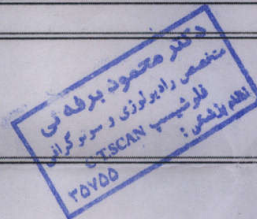 دکتر محمود برفه ئی
متخصص رادیولوژی و سونوگرافی
فلوشیپ C.T.SCAN
نظام پزشکی :
۳۵۷۵۵